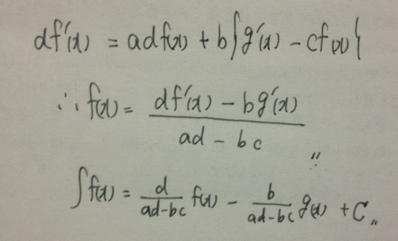 df'(x) = adf(x) + b{g'(x) - cf(x)}
∴ f(x) = \frac{df'(x) - bg'(x)}{ad - bc} 〃
∫f(x) = \frac{d}{ad-bc} f(x) - \frac{b}{ad-bc} g(x) + C 〃